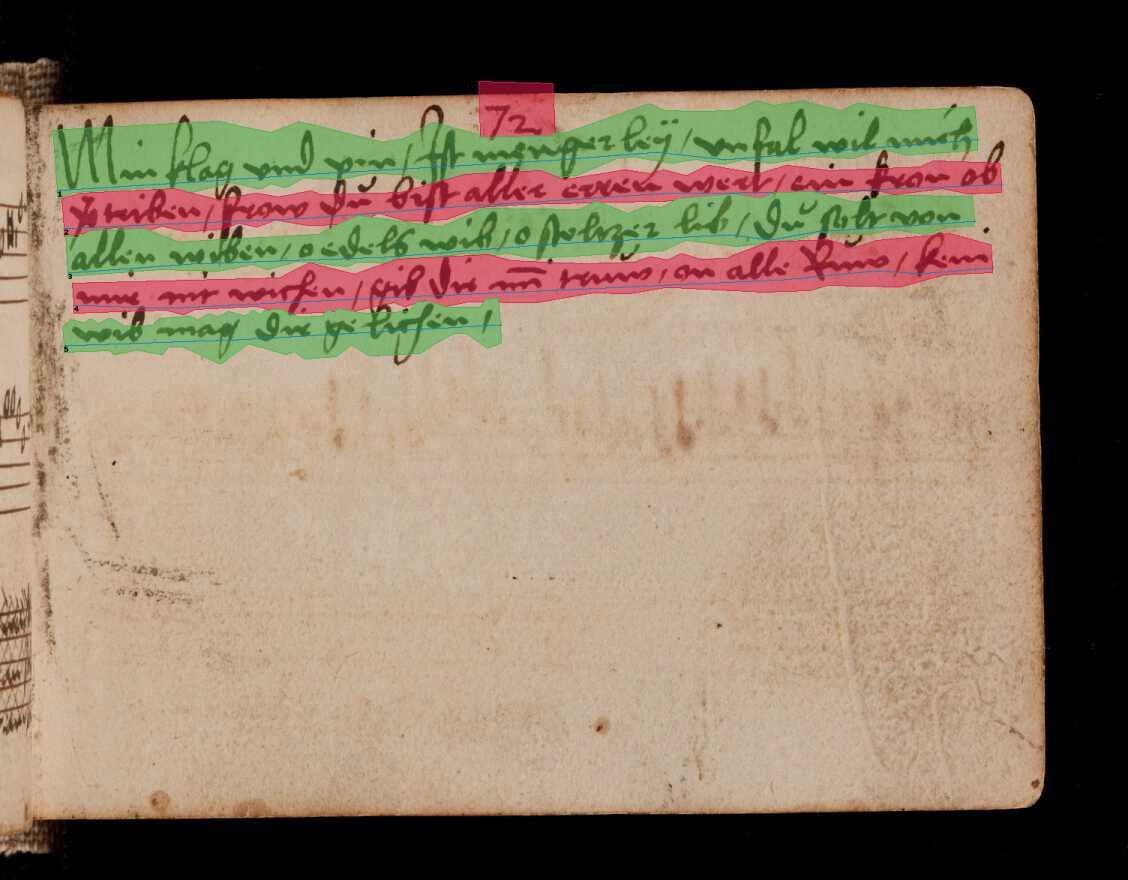 72
Min klag vnd pin / Ist menger leÿ / vnfal wil mich
v̄triben / frow dů bist aller erren wert / ein kron ob
allen wiben / o edels wib / o stoltzer lib / dů solt von
mir nit wichen / gib dir min̄ trůw / on alle Růw / kein
wib mag dir ge lichen /